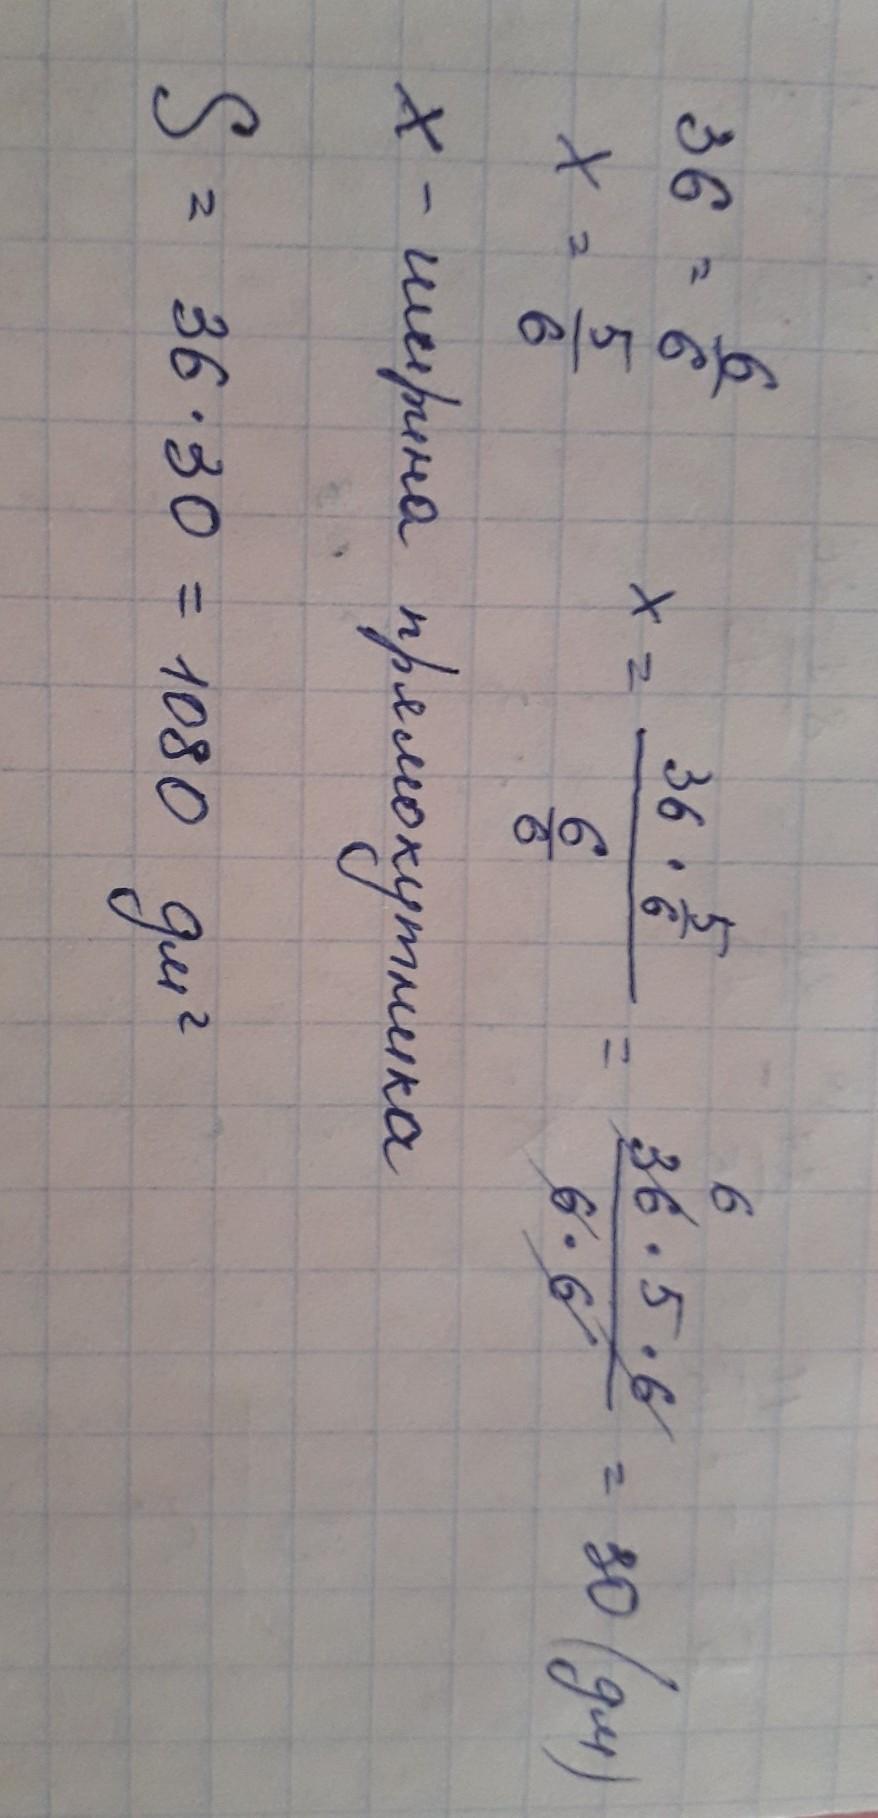 36 = 6/6
x = 5/6
x = (36 · 5/6) / (6/6) = (36 · 5 · 6) / (6 · 6) = 30 (дм)
6
x - ширина прямокутника
S = 36 · 30 = 1080 дм²